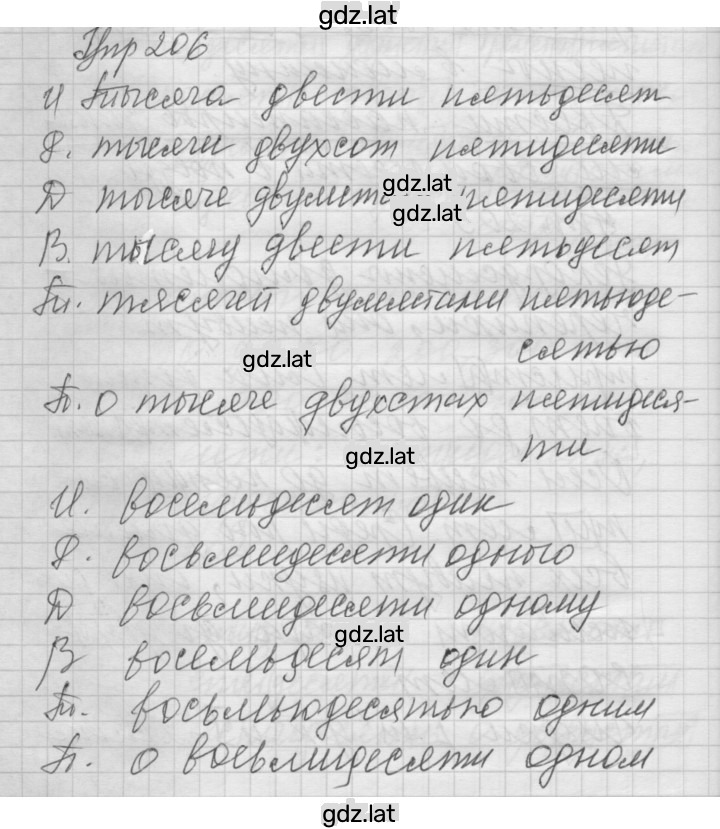 gdz.lat
Упр 206
И тысяча двести пятьдесят
Р. тысячи двухсот пятидесяти
gdz.lat
Д тысяче двумстам пятидесяти
gdz.lat
В. тысячу двести пятьдесят
Тв. тысячей двумястами пятьюде-
сятью
gdz.lat
П. о тысяче двухстах пятидеся-
ти
gdz.lat
И. восемьдесят один
Р. восьмидесяти одного
Д восьмидесяти одному
gdz.lat
В восемьдесят один
Тв. восьмьюдесятью одним
П. о восьмидесяти одном
gdz.lat